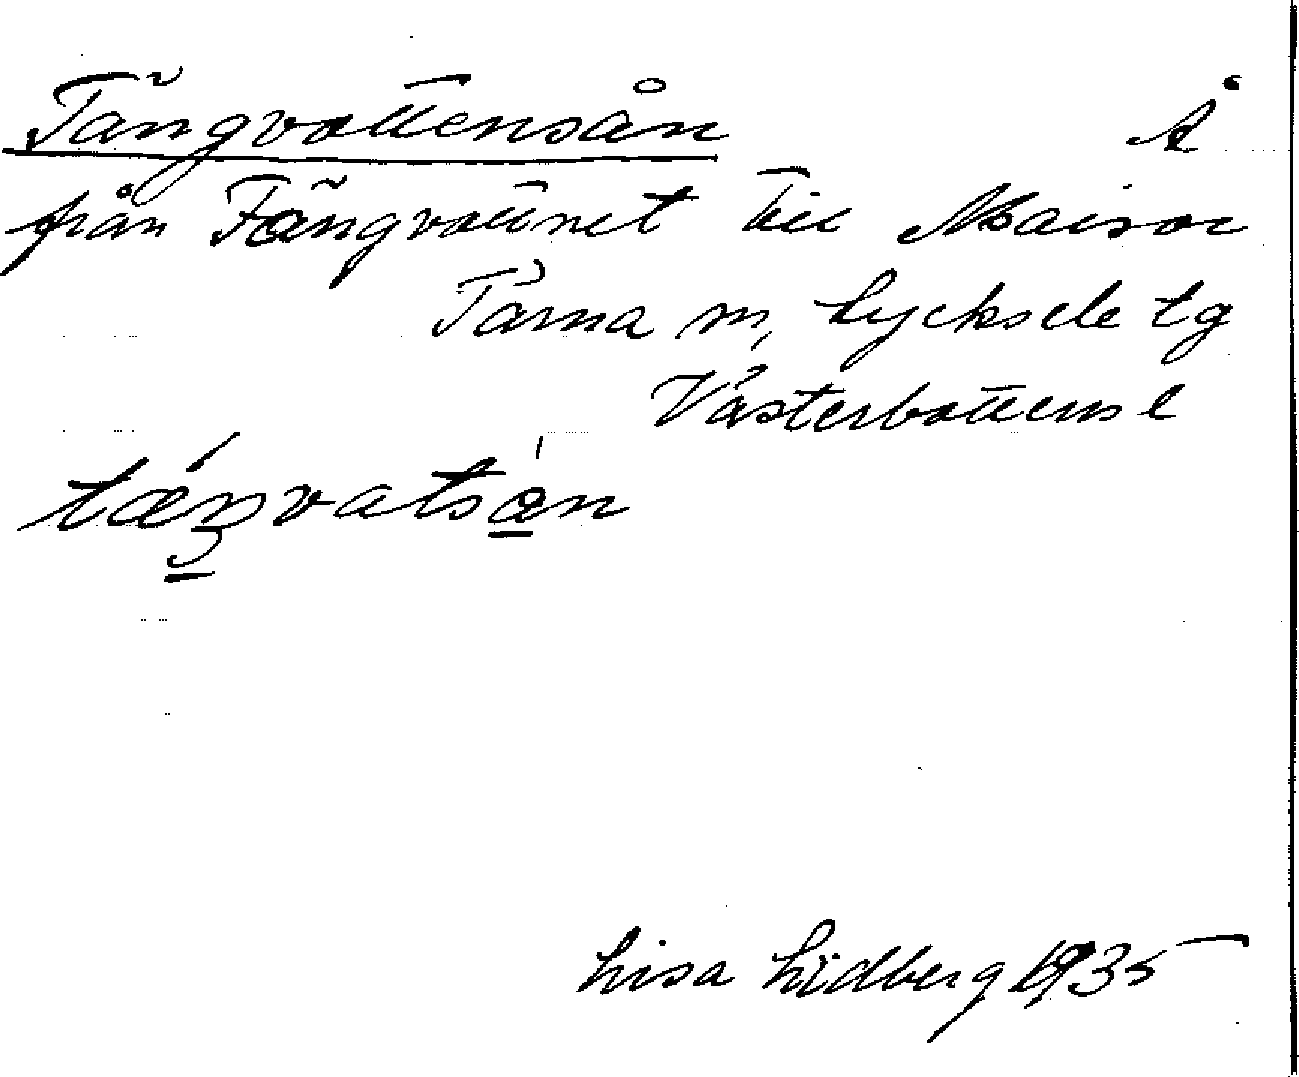 Tängvattensån Å
från Tängvattnet till Maisor
Tärna sn, Lycksele lg
Västerbottens l
tæŋvatsån
Lisa Lidberg 1935